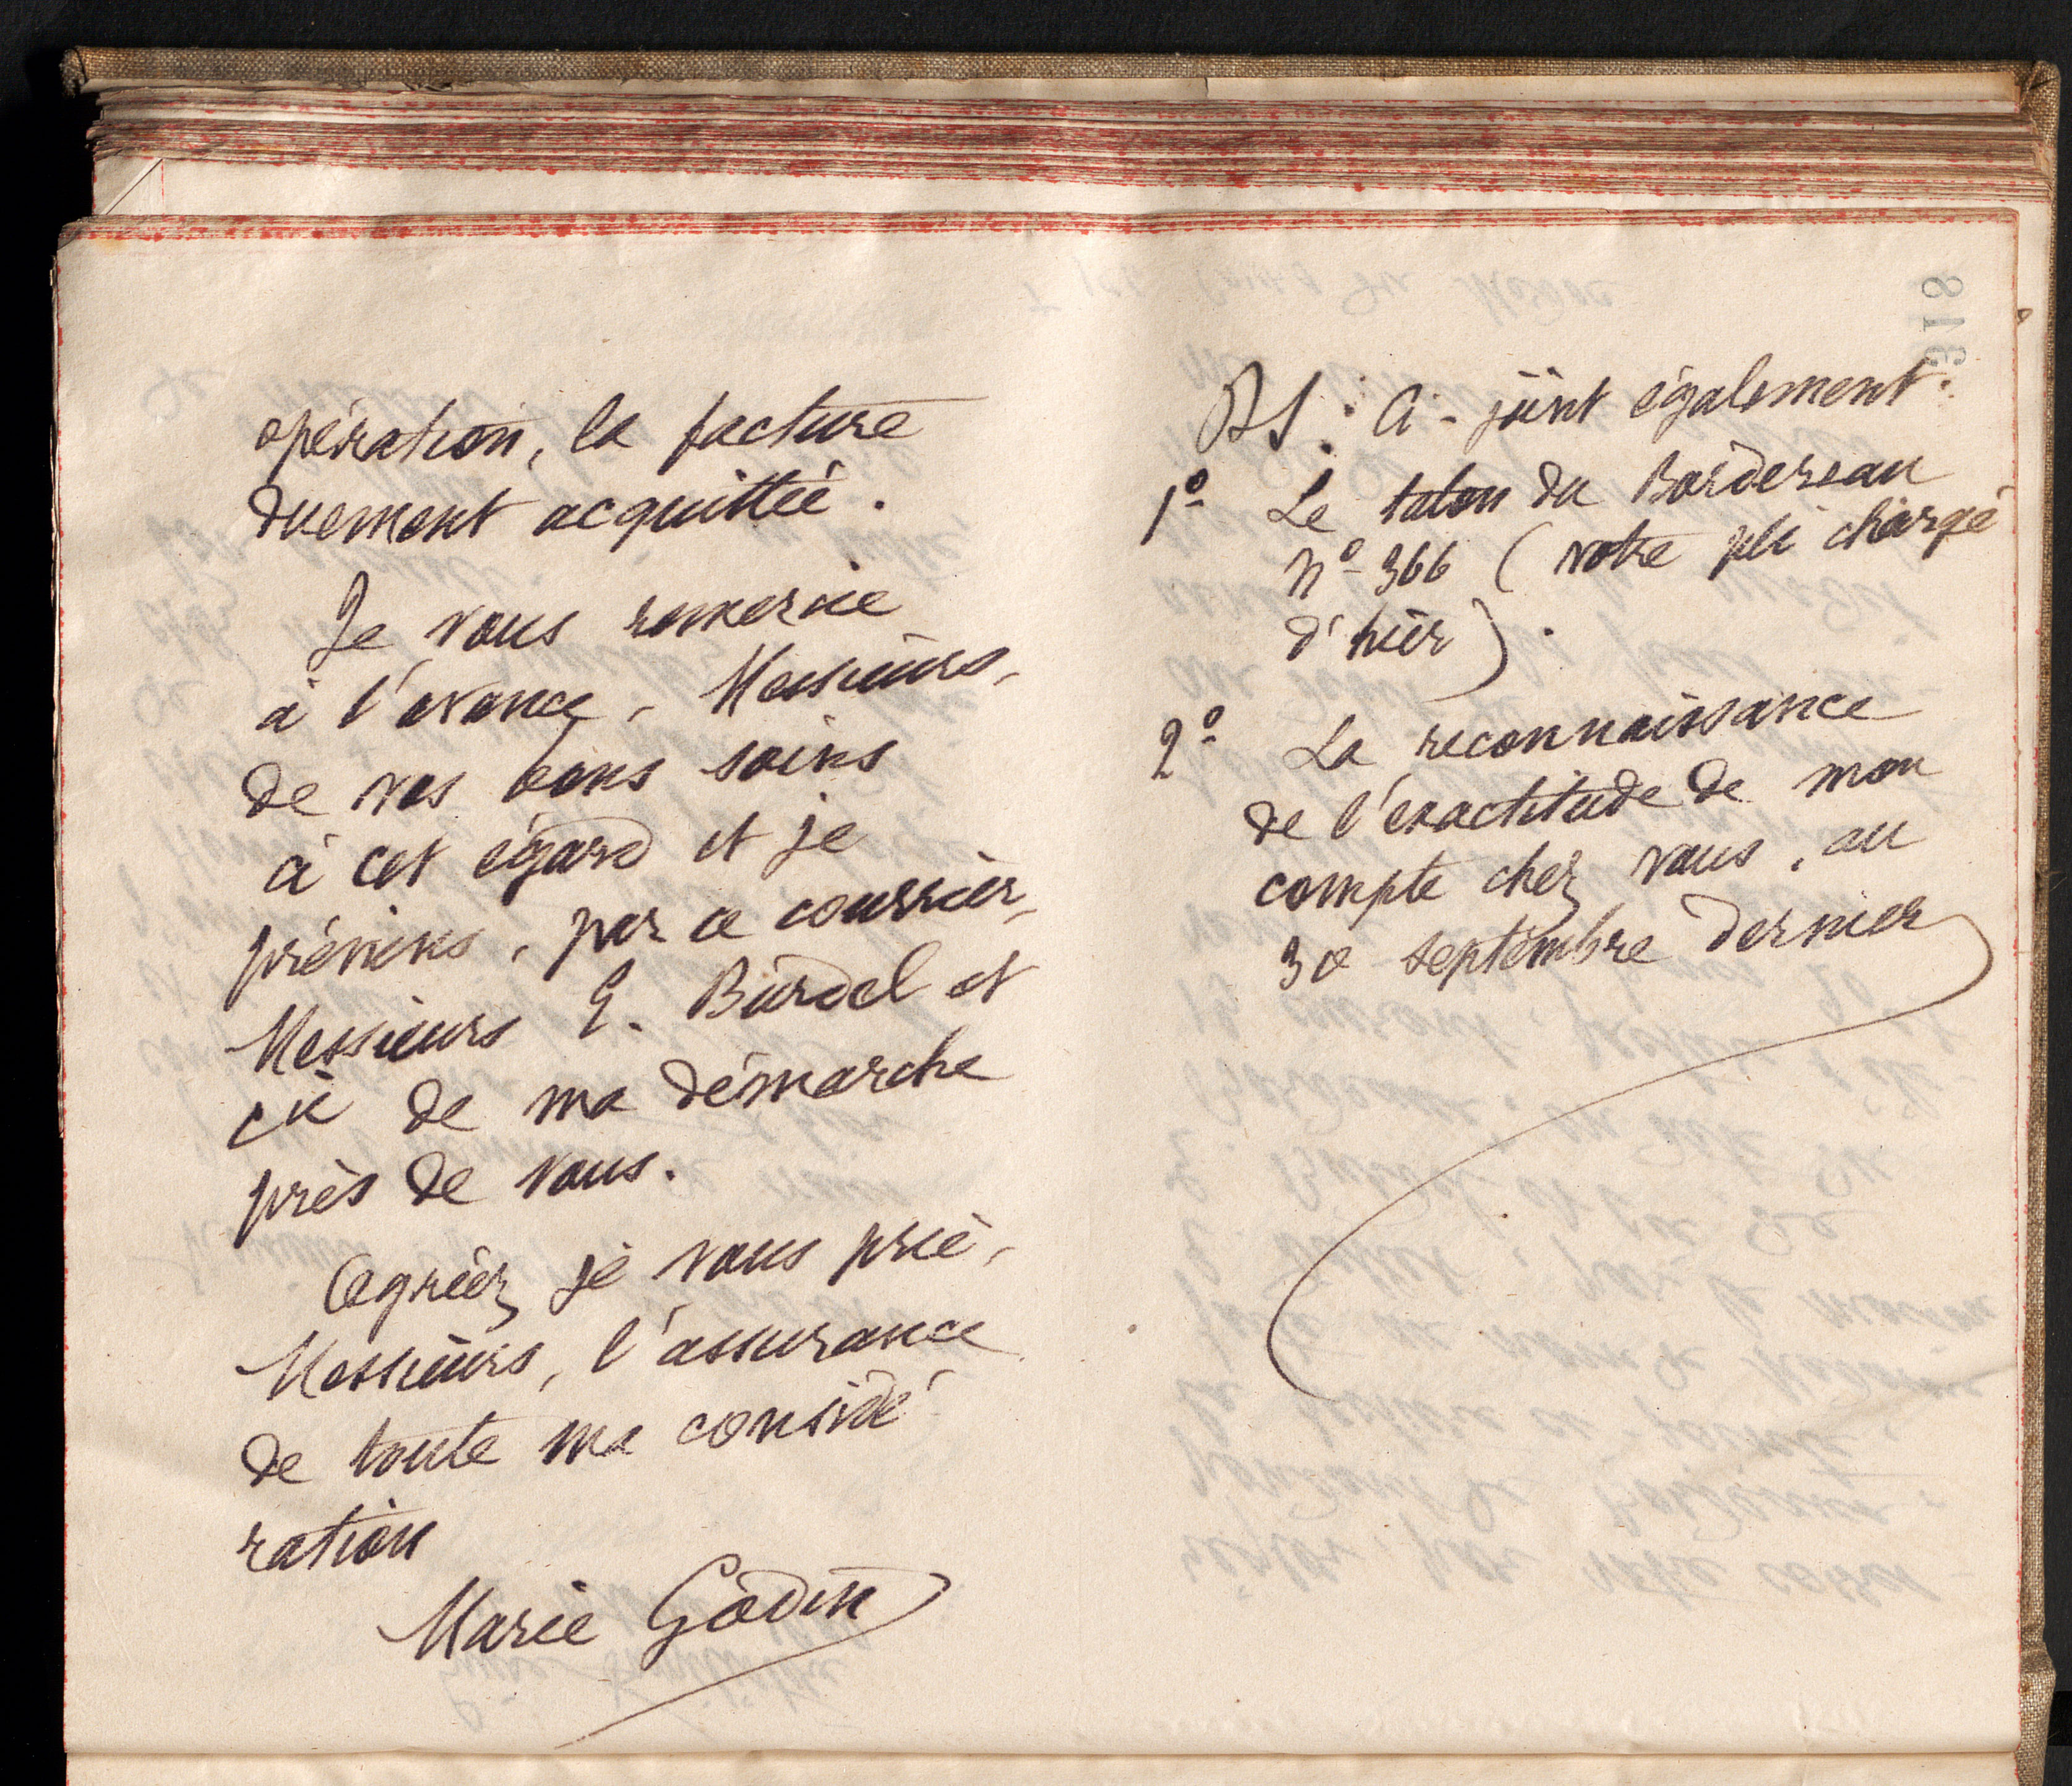 opération, la facture
duement acquittée.
Je vous remercie
à l'avance, Messieurs,
de vos bons soins
à cet égard et je
préviens, par ce courrier,
Messieurs E. Burdel et
Cie de ma démarche
près de vous.
Agréez, je vous prie,
Messieurs, l'assurance
de toute ma considé
ration
Marie Godin
318
PS: Ci-joint également:
1º Le talon du Bordereau
Nº 366 (votre pli chargé
d'hier).
2º La reconnaissance
de l'exactitude de mon
compte chez vous, au
30 septembre dernier